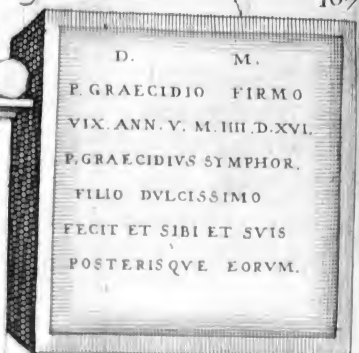 D. M.
P. GRAECIDIO FIRMO
VIX. ANN. V. M. IIII. D. XVI.
P. GRAECIDIVS SYMPHOR.
FILIO DVLCISSIMO
FECIT ET SIBI ET SVIS
POSTERISQVE EORVM.